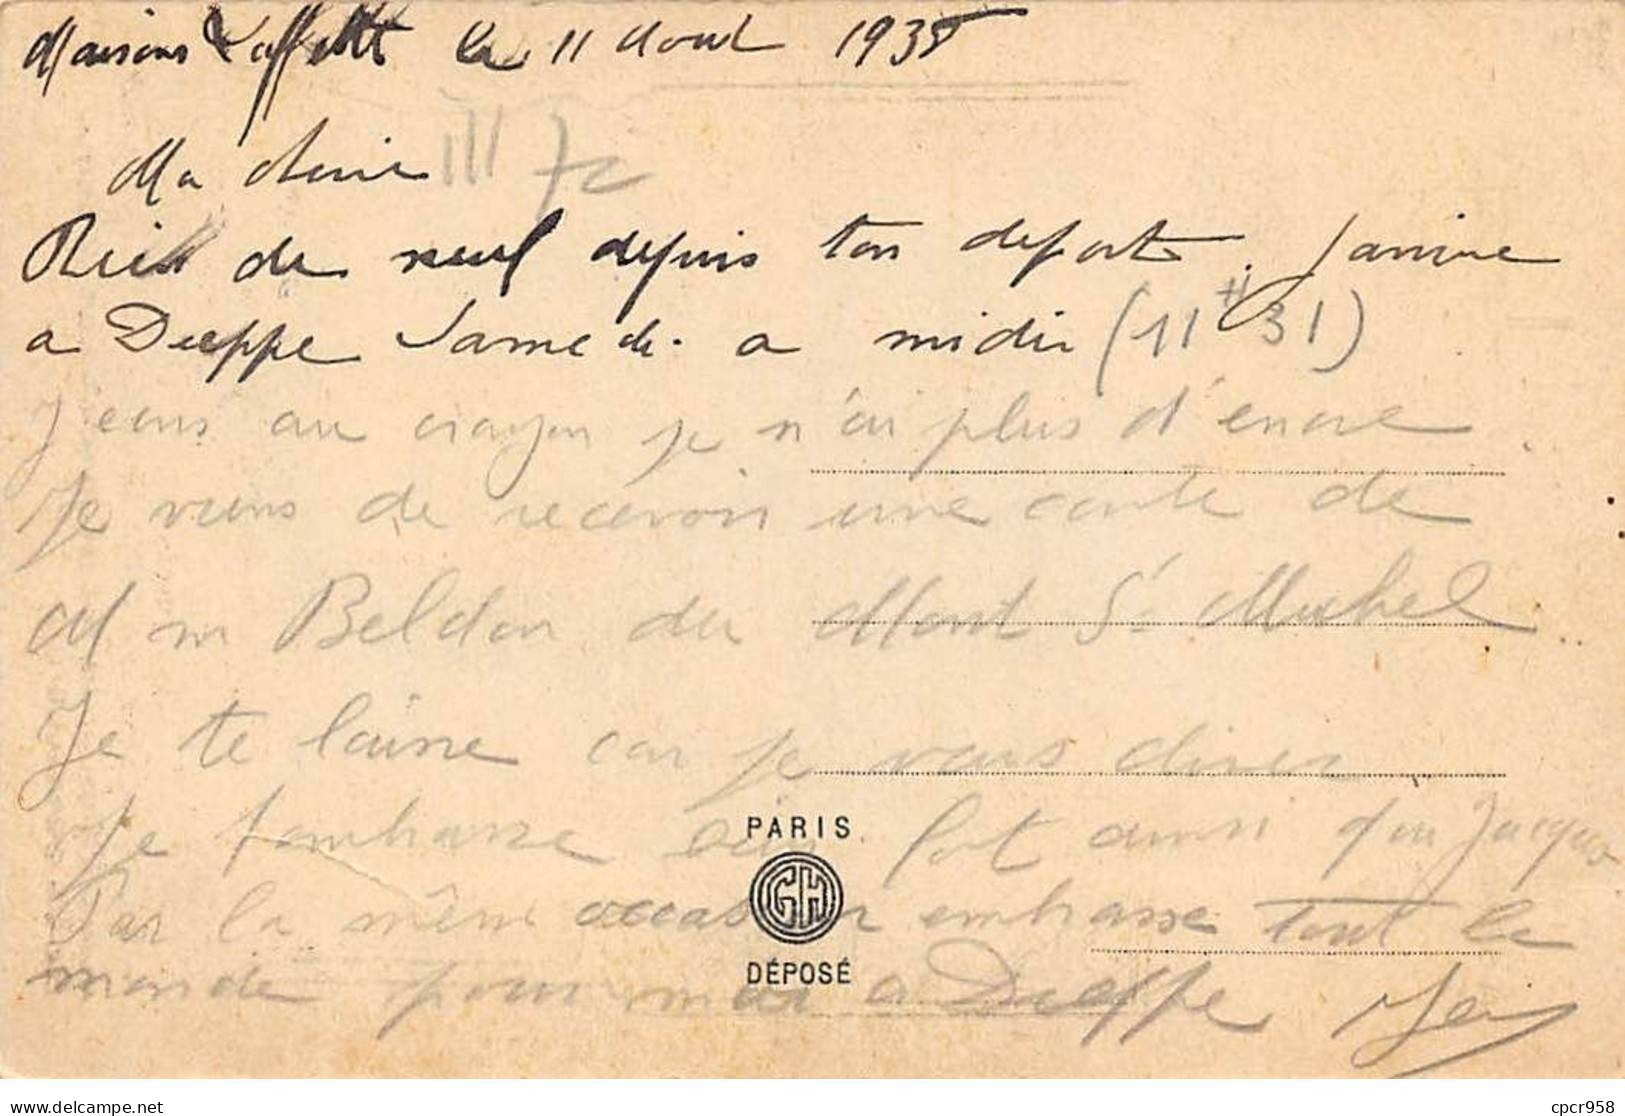 Maisons Laffitte le 11 Aout 1935
Ma chérie
III 72
Rien de neuf depuis ton départ. Janine
a Dieppe Samedi a midi (11 H 31)
J'ecris au crayon je n'ai plus d'encre.
Je viens de recevoir une carte de
M m Beldon du Mont St Michel..
Je te laisse car je vais diner
Je t'embrasse bien fort ainsi que Jacques
Par la même occasion embrasse tout le
monde pour moi a Dieppe
PARIS
GH
DÉPOSÉ
delcampe.net
cpcr958